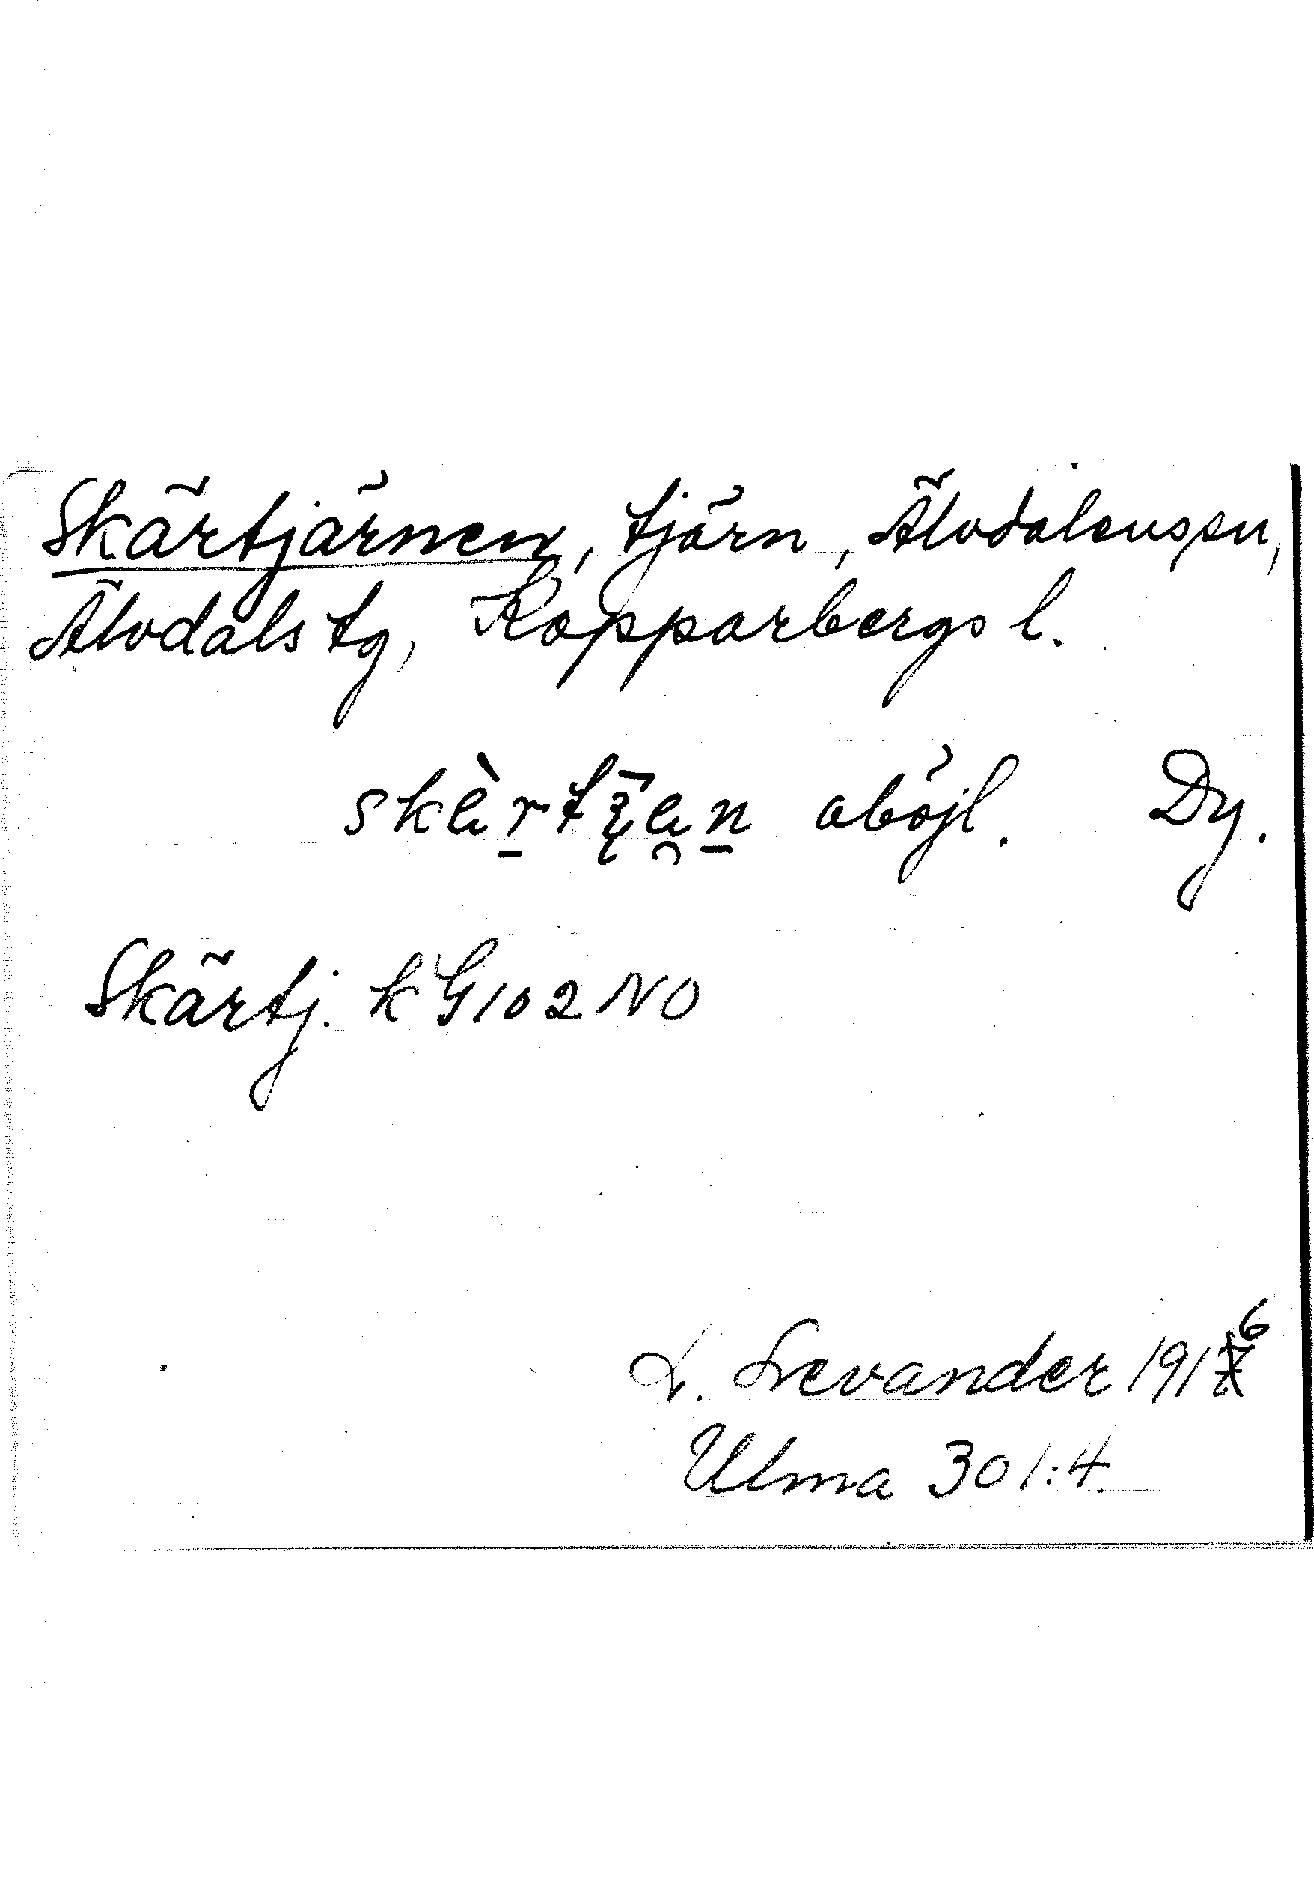 Skärtjärnen, tjärn, Älvdalens sn,
Älvdals tg, Kopparbergs l.
oböjl. Dy.
Skärtj. k G 102 NO
L. Levander 1916
Ulma 301:4.